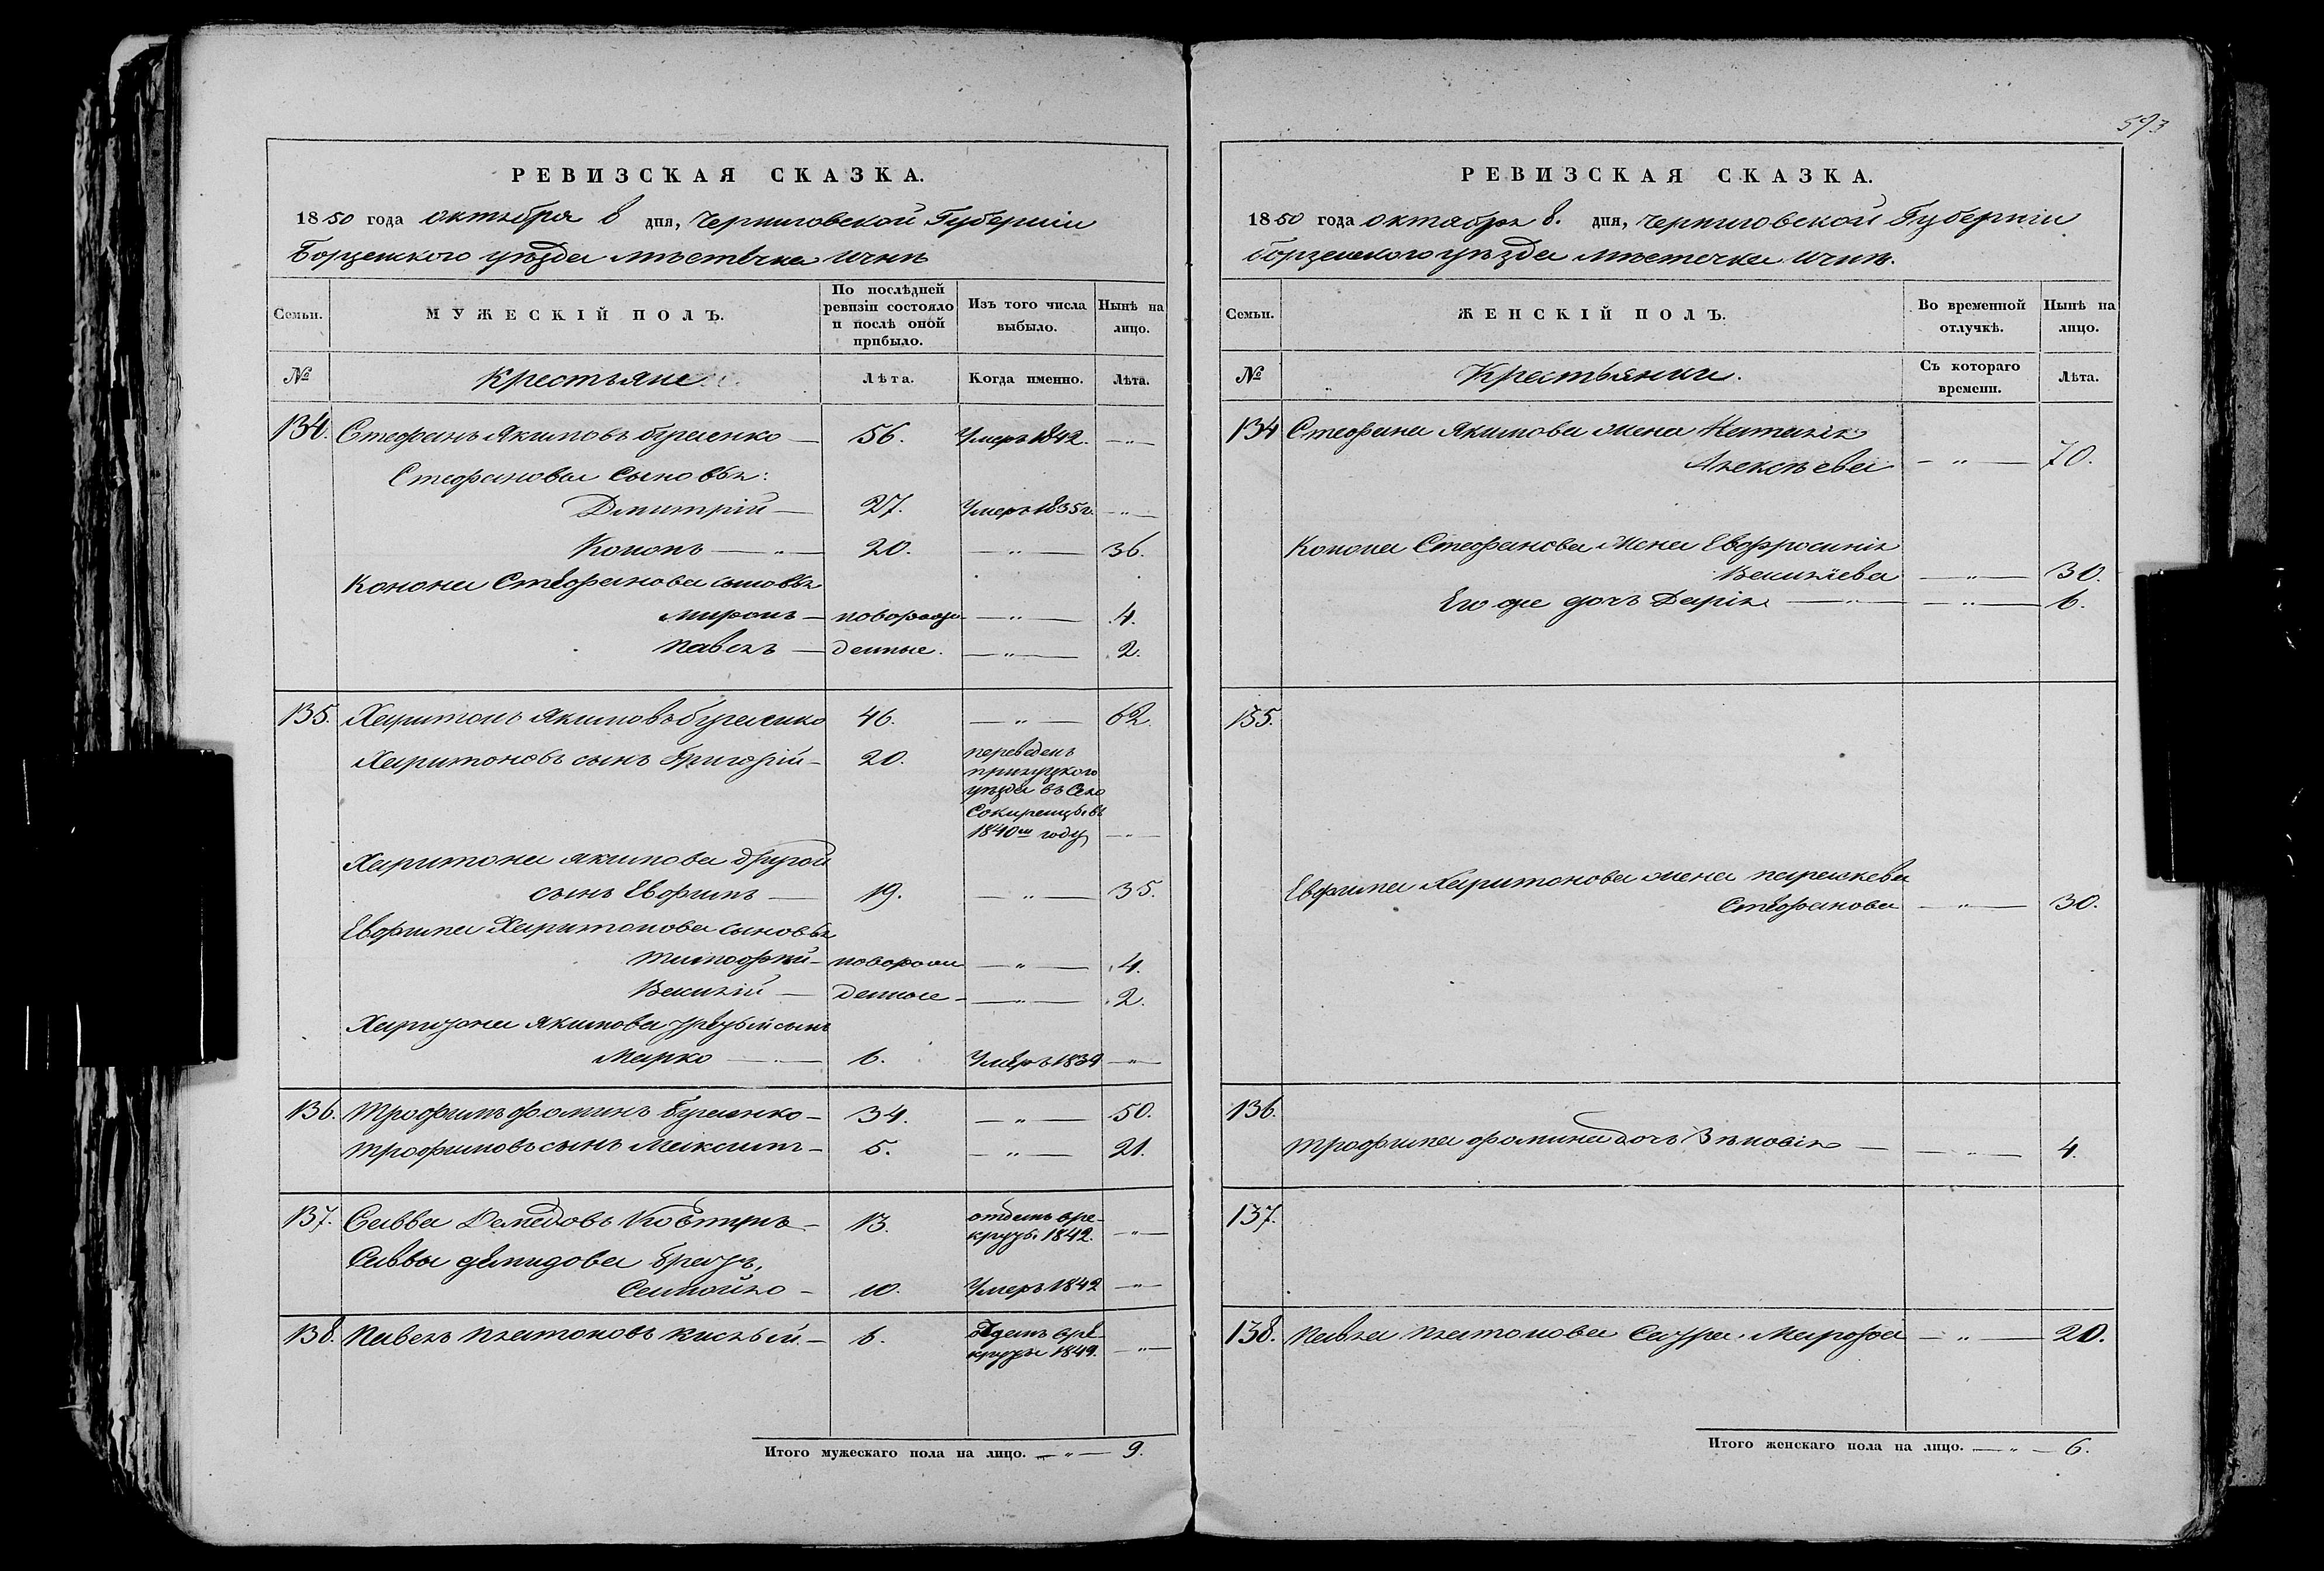 593
РЕВИЗСКАЯ СКАЗКА.
1850 года октября 8 дня, Черниговской Губерніи
Борзенского уѣзда мѣстечка Ични
Семьи.
МУЖЕСКІЙ ПОЛЪ.
По послѣдней ревизіи состояло и послѣ оной прибыло.
Изъ того числа выбыло.
Нынѣ на лицо.
№
Крестьяне
Лѣта.
Когда именно.
Лѣта.
134. Стефанъ Якимовъ 56. Умеръ 1842. — " —
Стефановы Сыновья:
Дмитрій — 27. Умеръ 1835 г. — " —
Кононъ — " — 20. — " — 36.
Конона Стефанова сыновья
Миронъ — новорож- — " — 4.
Павелъ — денные. — " — 2.
135. Харитонъ Якимовъ 46. — " — 62.
Харитоновъ сынъ Григорій — 20. переведенъ
прилуцкого
уѣзда въ Село
Сокиренцы въ
1840мъ году — " —
Харитона Якимова другой
сынъ Евфимъ — 19. — " — 35.
Евфима Харитонова сыновья
Тимофей — новорож — " — 4.
Василій — денные — — " — 2.
Харитона Якимова третьй сынъ
Марко — " — 6. Умеръ 1839 — " —
136. Трофимъ Фоминъ — 34. — " — 50.
Трофимовъ сынъ Максимъ — 5. — " — 21.
137. Савва Демидовъ — 13. отданъ вре-
круты 1842. — " —
Саввы Демидова братъ,
Самойло — 10. Умеръ 1842 — " —
138. Павелъ Платоновъ Кислый. — 6. отданъ вре
круты 1849. — " —
Итого мужескаго пола на лицо. — " — 9.
РЕВИЗСКАЯ СКАЗКА.
1850 года октября 8. дня, Черниговской Губерніи
Борзенского уѣзда мѣстечка Ични.
Семьи.
ЖЕНСКІЙ ПОЛЪ.
Во временной отлучкѣ.
Нынѣ на лицо.
№
Крестьянки.
Съ котораго времени.
Лѣта.
134 Стефана Якимова жена Наталія
Алексѣева — " — 70.
Конона Стефанова жена Евфросинія
Василіева — " — 30.
Его же дочь Дарія — " — — " — 6.
135.
Евфима Харитонова жена Параскева
Стефанова — " — 30.
136.
Трофима Фомина дочь Зѣновія — — " — 4.
137.
138. Павла Платонова Сестра Марфа — " — 20.
Итого женскаго пола на лицо. — " — 6.